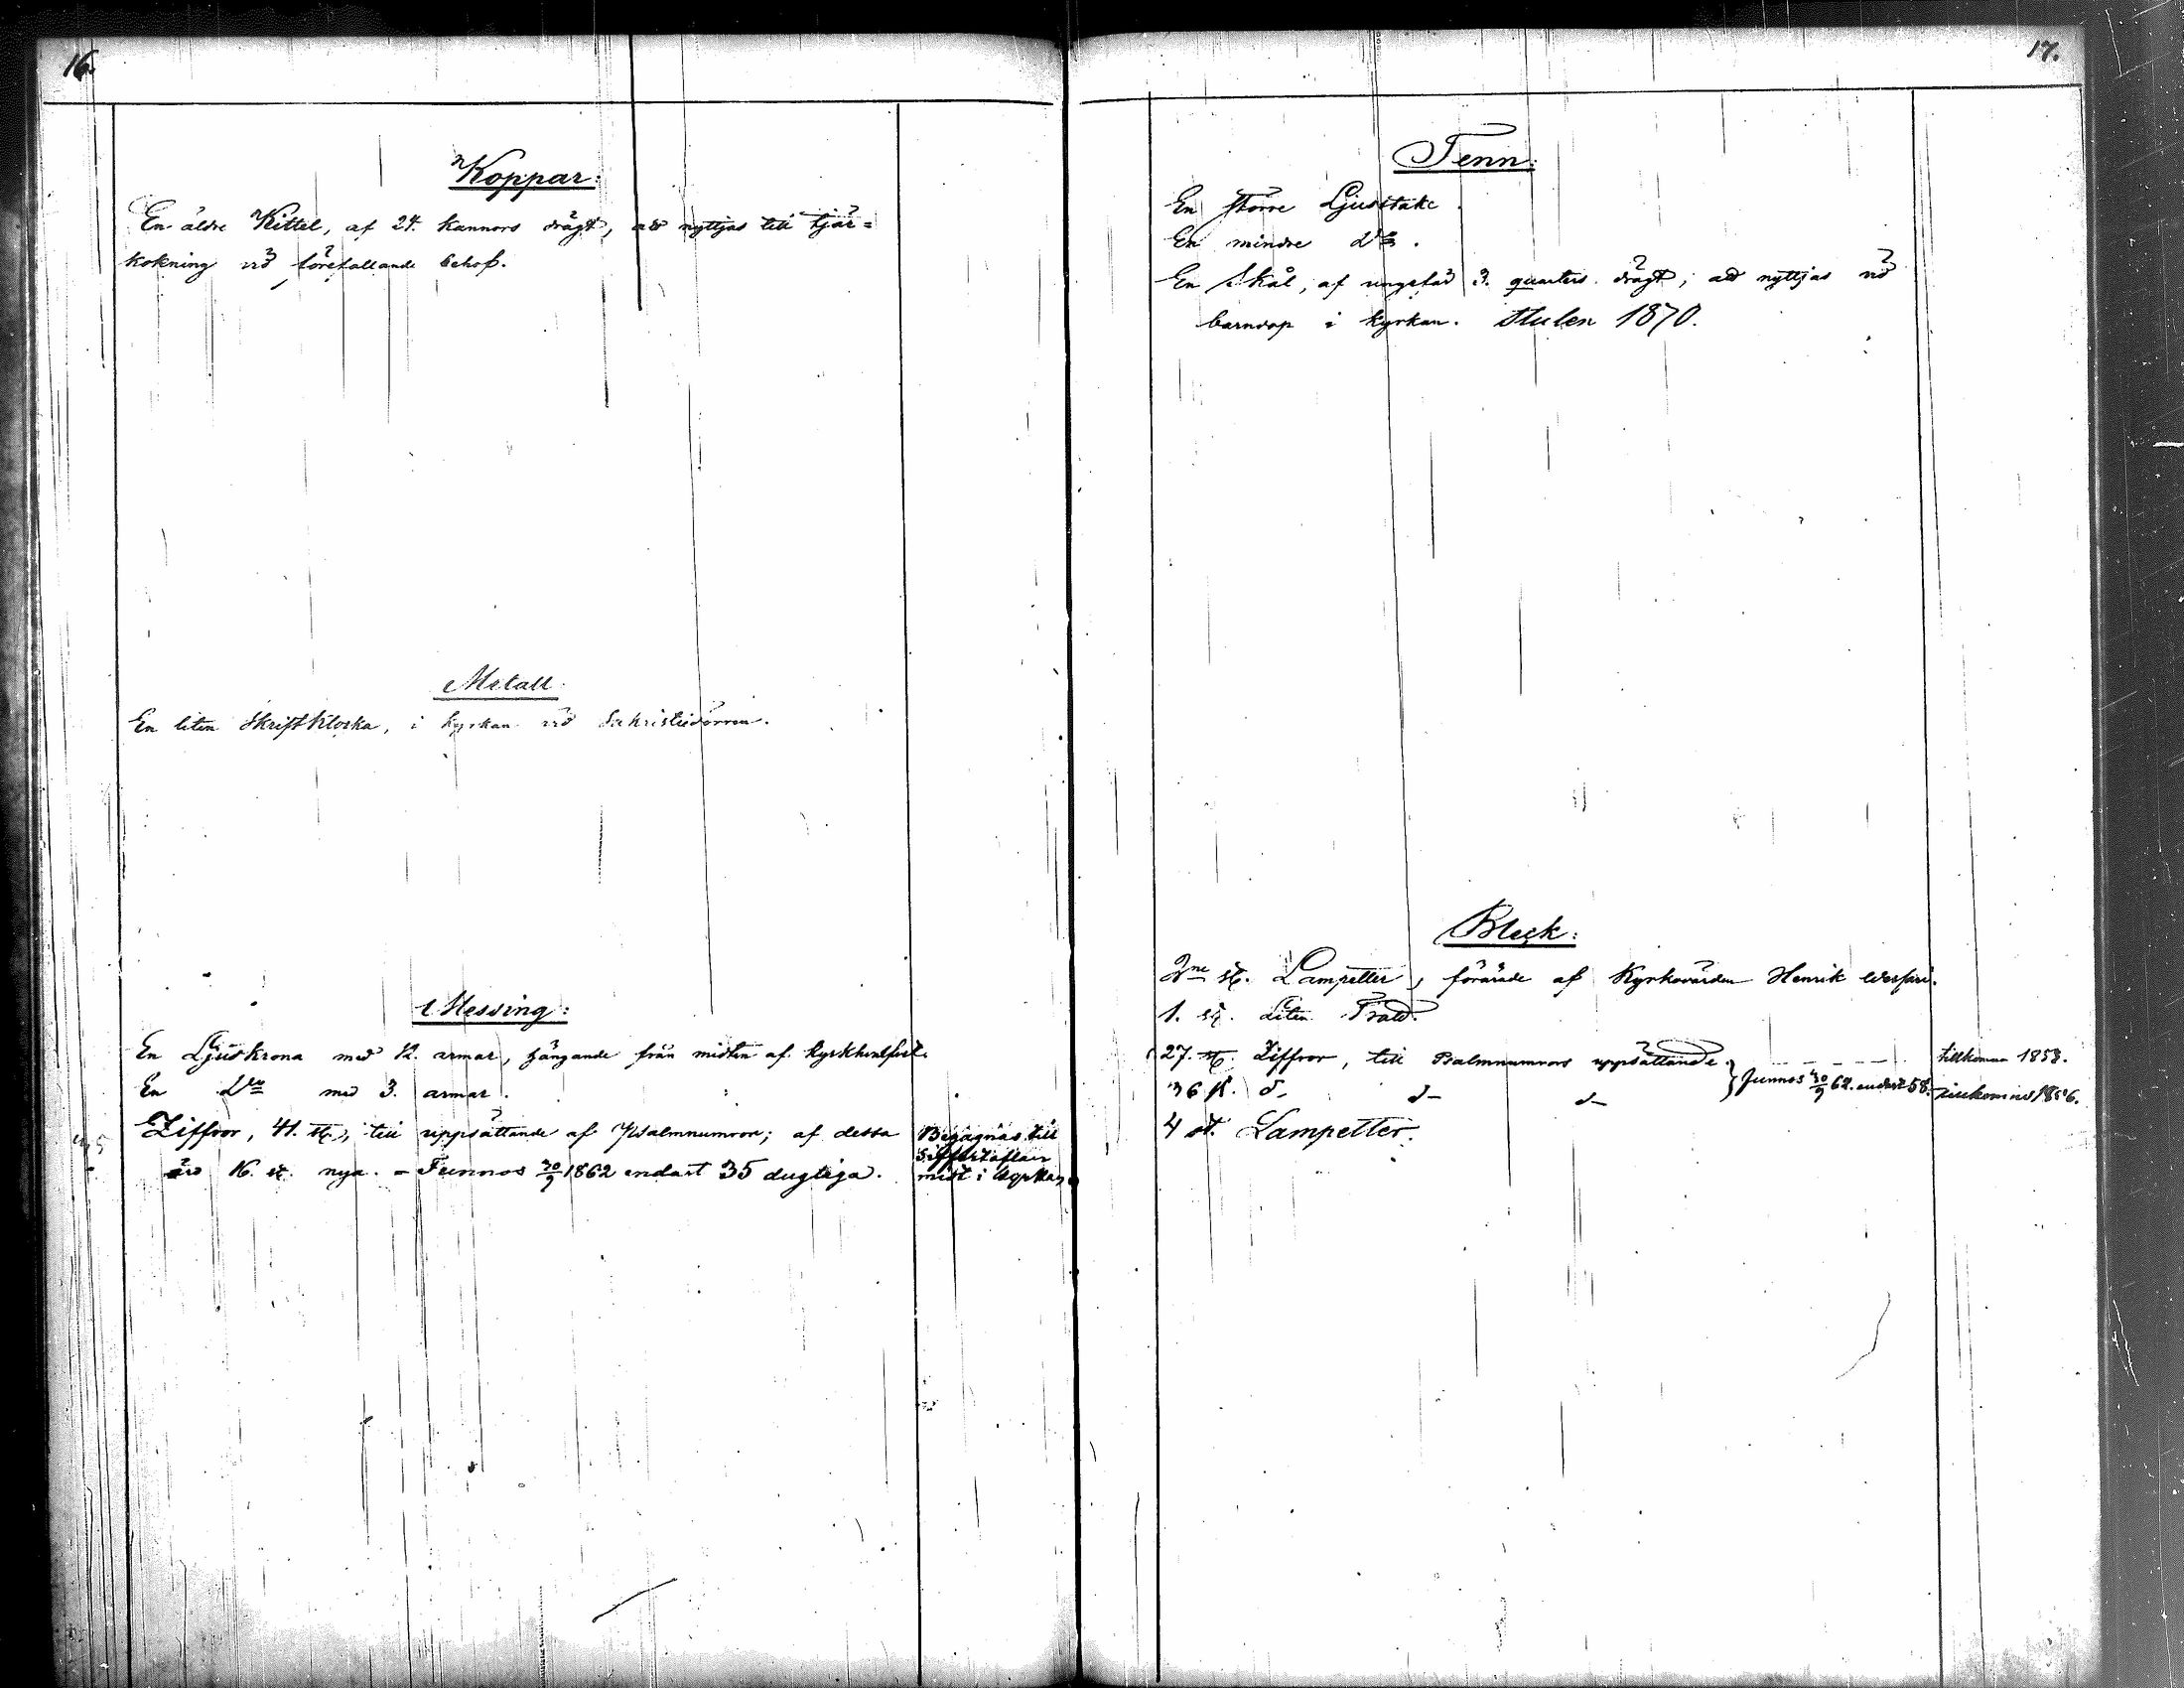 16.
Koppar:
En äldre Kittel, af 24. kannors drägt, att nyttjas till tjär=
kokning vid förefallande behof.
Metall
En liten Skriftklocka, i kyrkan vid Sakristiedörren.
Messing:
En Ljuskrona med 12. armar, hängande från midten af kyrkhvalfvet.
En D:o med 3. armar.
Ziffror, 41. st., till uppsättande af Psalmnumror; af dessa
äro 16. st. nya. - Funnos 30/9 1862 endast 35 dugliga.
Begagnas till
Siffertaflan
midt i kyrkan
17.
Tenn:
En större Ljusstake.
En mindre D:o.
En Skål, af ungefär 3. quarters drägt; att nyttjas vid
barndop i kyrkan. Stulen 1870.
Bleck:
2ne st. Lampetter, förärade af Kyrkovärden Henrik
1. st. Liten Tratt.
27. st. Ziffror, till Psalmnumrors uppsättande.
tillkomna 1853.
36 st. d- d- d-
Funnos 30/9 62. endast 58.
tillkomna 1856.
4 st. Lampetter.